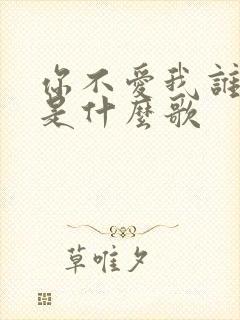 你不愛我誰
是什麼歌
草唯夕